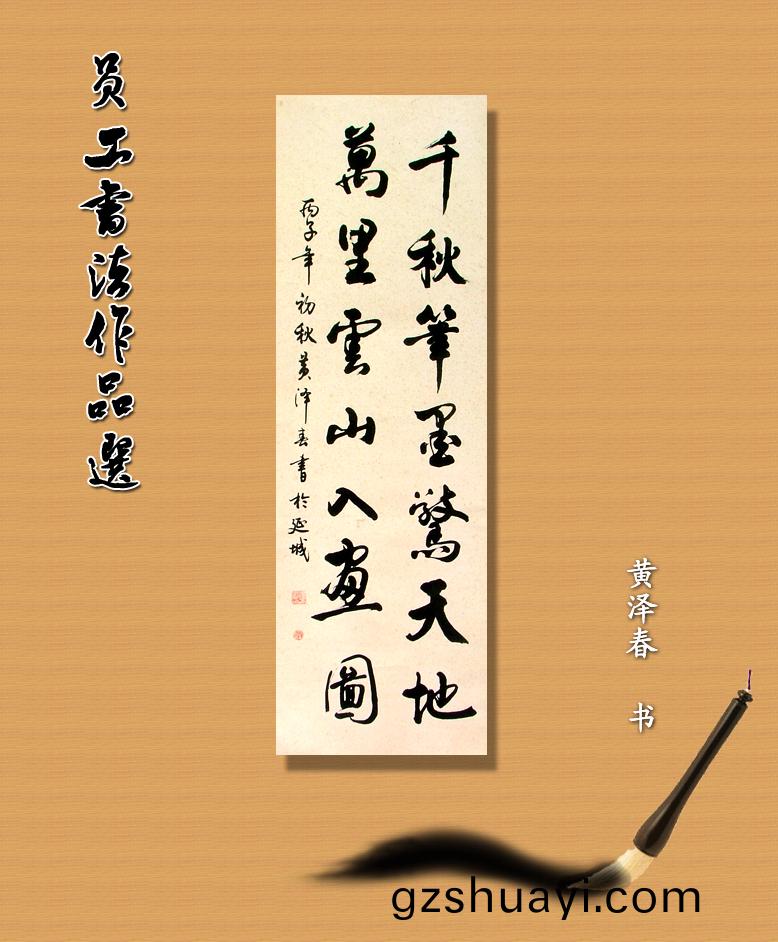 员工书法作品選
千秋筆墨驚天地
萬里雲山入畫圖
丙子年初秋黄泽春書於延城
黄泽春 书
gzshuayi.com